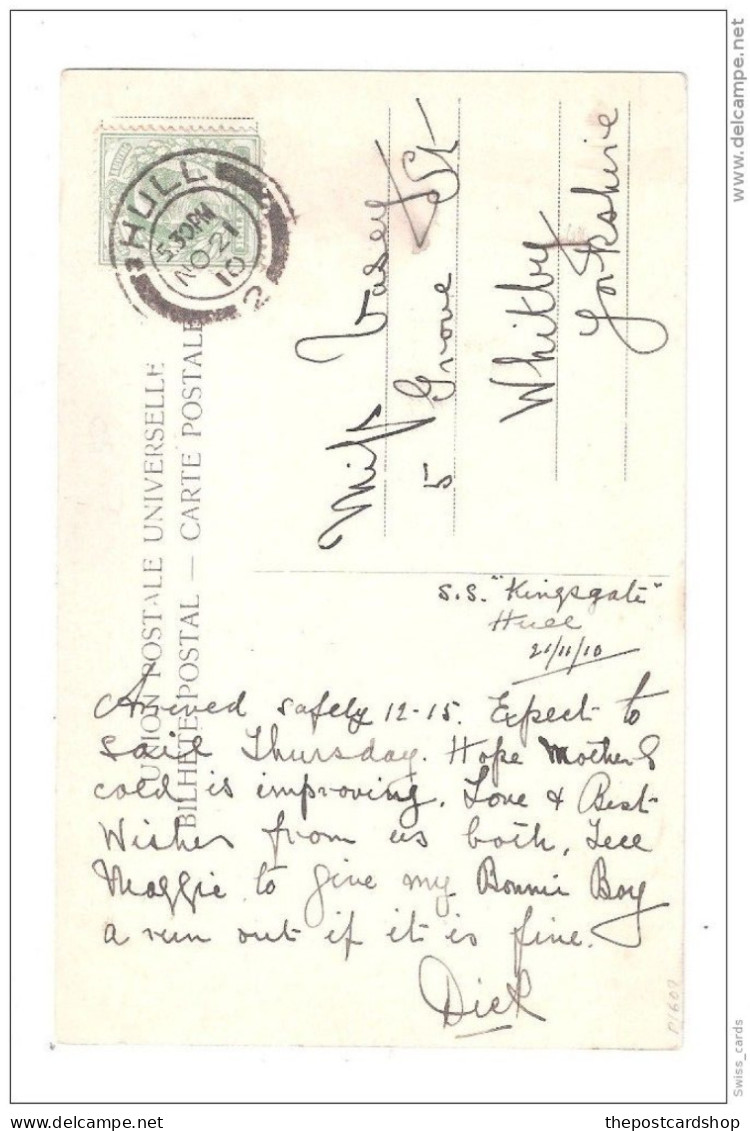 HULL
5.30PM
NO 21
10
2
UNION POSTALE UNIVERSELLE
BILHETE POSTAL — CARTE POSTALE
Miss Vasey
5 Grove St
Whitby
Yorkshire
S.S. "Kingsgate"
Hull
21/11/10
Arrived safely 12-15. Expect to
sail Thursday. Hope Mother's
cold is improving. Love & Best
Wishes from us both. Tell
Maggie to give my Bonnie Boy
a run out if it is fine.
Dick
P/609
www.delcampe.net
Swiss_cards
thepostcardshop